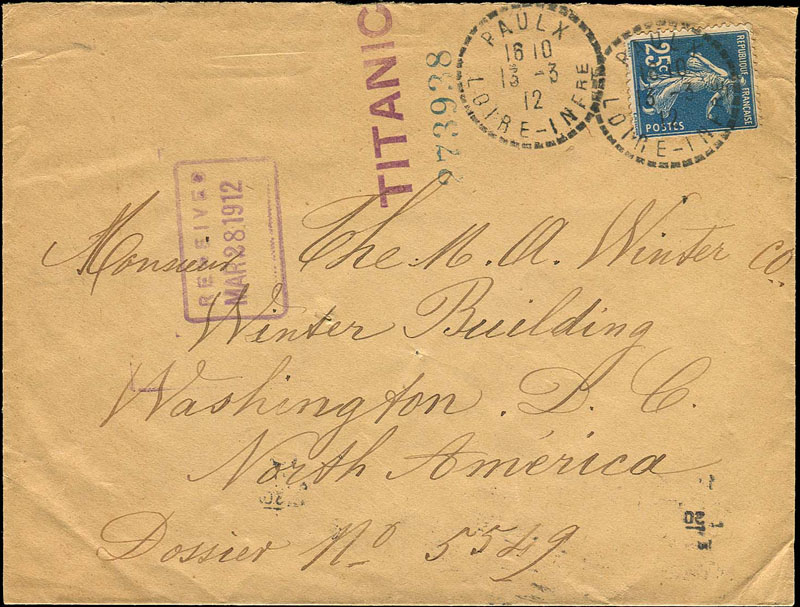 TITANIC
273938
PAULX
16 10
13 -3
12
LOIRE-INFRE
REPUBLIQUE FRANÇAISE
25c
POSTES
RECEIVED
MAR 28 1912
Monsieur The M. A. Winter Co.
Winter Building
Washington. D. C.
North América
Dossier No 5549